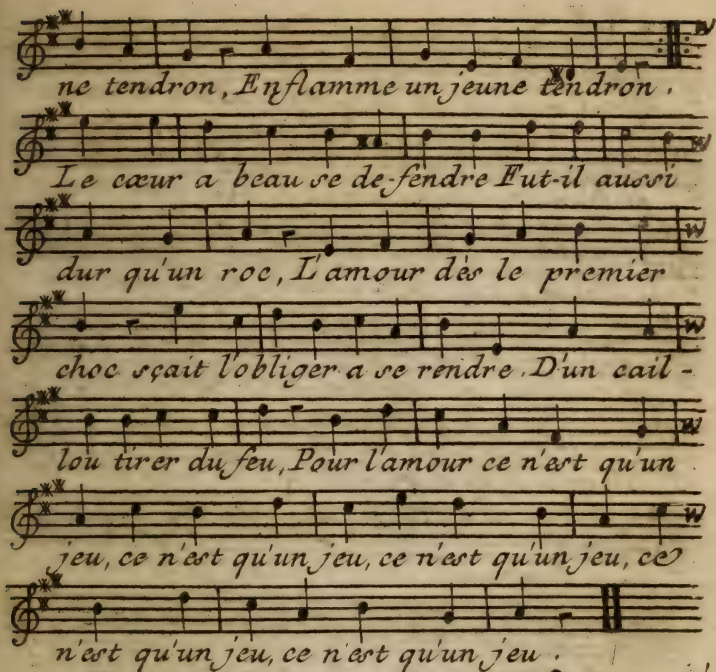 ne tendron, Enflamme un jeune tendron.
Le cœur a beau se de-fendre Fut-il aussi
dur qu'un roc, L'amour dès le premier
choc sçait l'obliger a se rendre. D'un cail-
lou tirer du feu, Pour l'amour ce n'est qu'un
jeu, ce n'est qu'un jeu, ce n'est qu'un jeu, ce
n'est qu'un jeu, ce n'est qu'un jeu.